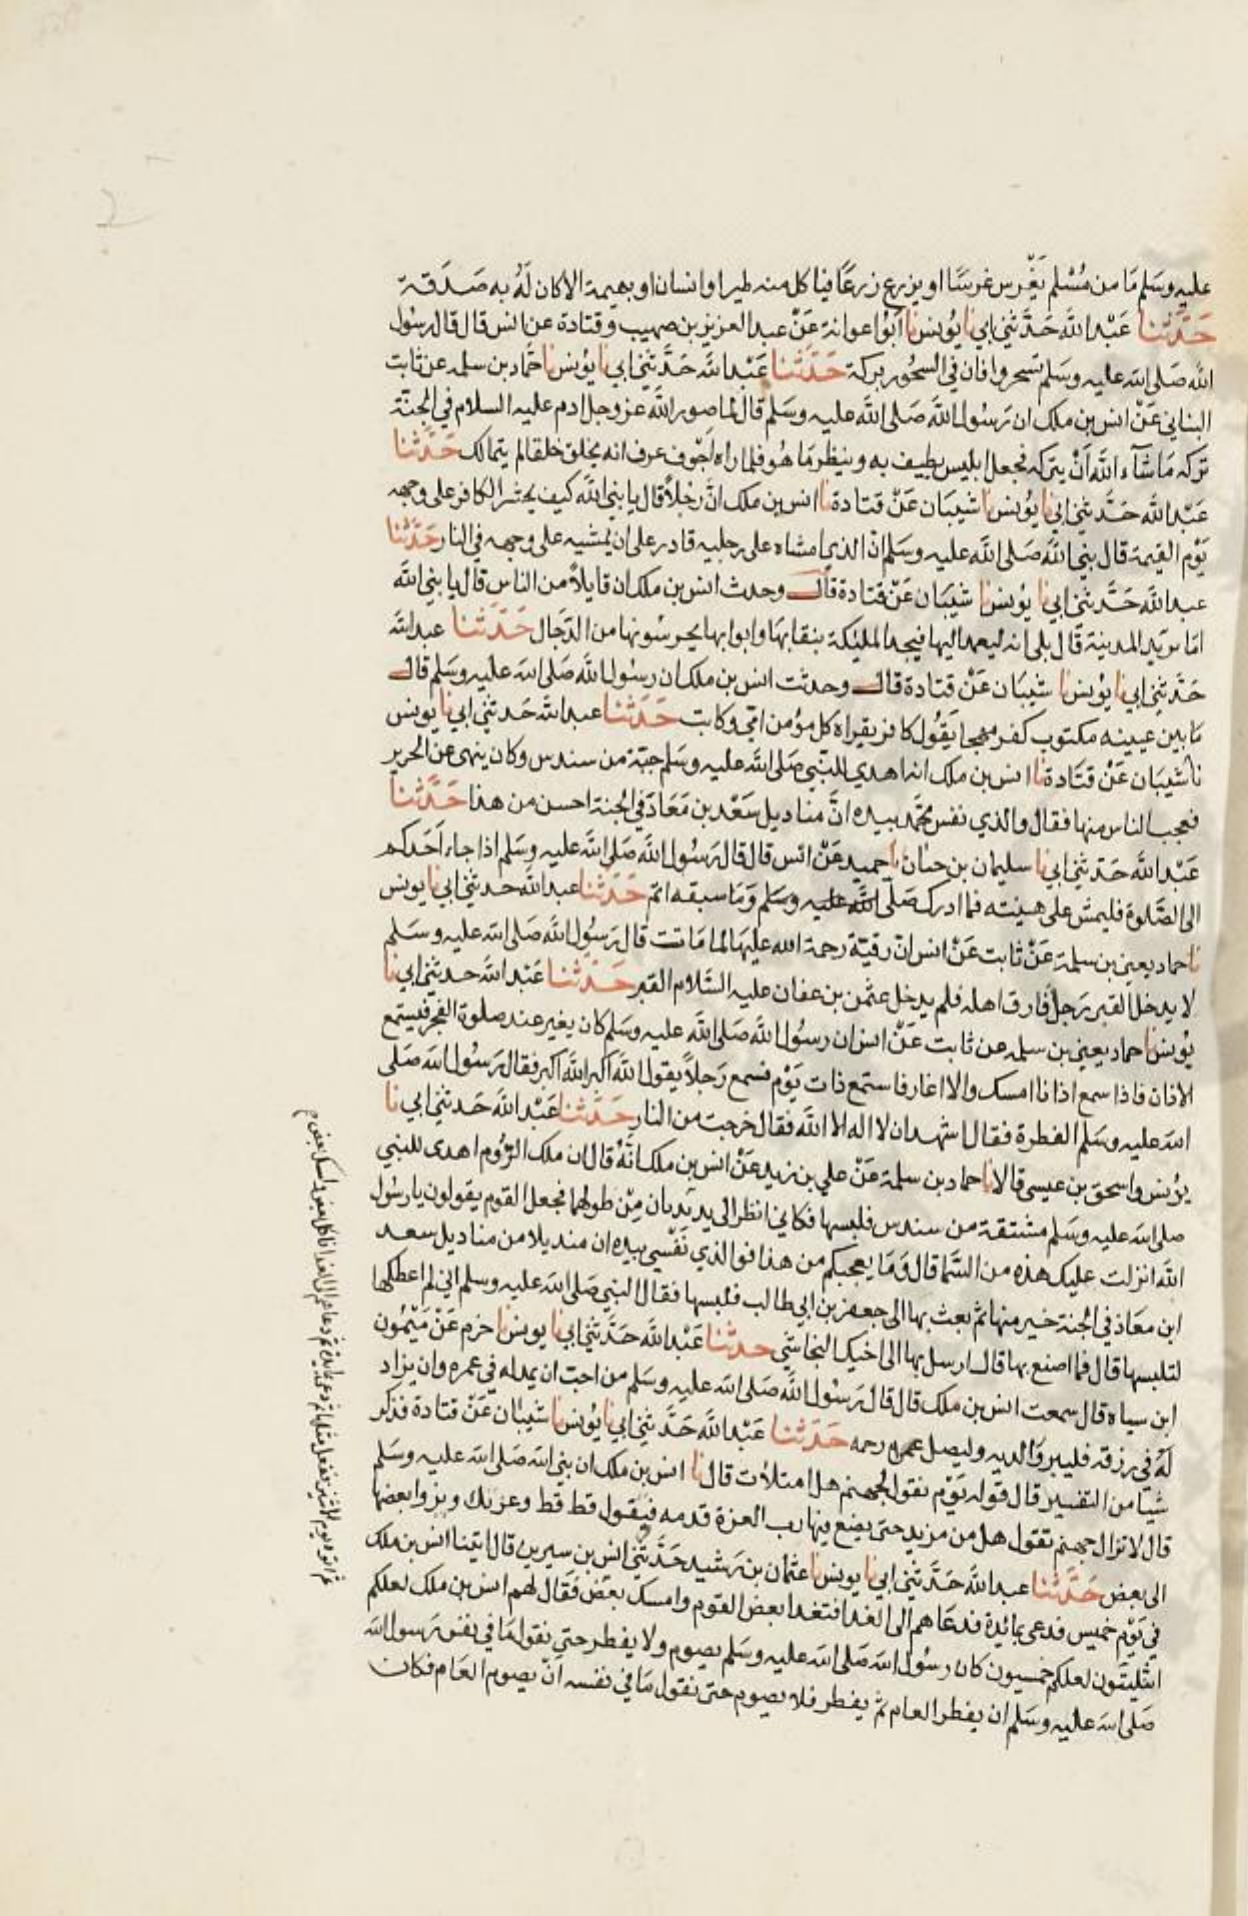 عليه وسلم ما من مسلم يغرس غرسا او يزرع زرعا فياكل منه طير او انسان او بهيمة الا كان له به صدقة
حدثنا عبد الله حدثني ابي نا يونس نا ابو اعوانة عن عبد العزيز بن صهيب وقتادة عن انس قال قال رسول
الله صلى الله عليه وسلم تسحروا فان في السحور بركة حدثنا عبد الله حدثني ابي نا يونس نا حماد بن سلمه عن ثابت
البناني عن انس بن ملك ان رسول الله صلى الله عليه وسلم قال لما صور الله عز وجل ادم عليه السلام في الجنة
تركه ما شآء الله ان يتركه فجعل ابليس يطيف به وينظر ما هو فلما راه اجوف عرف انه يخلق خلقا لم يتمالك حدثنا
عبد الله حدثني ابي نا يونس نا شيبان عن قتادة نا انس بن ملك ان رجلا قال يا نبي الله كيف يحشر الكافر على وجهه
يوم القيمة قال نبي الله صلى الله عليه وسلم ان الذي امشاه على رجليه قادر على ان يمشيه على وجهه في النار حدثنا
عبد الله حدثني ابي نا يونس نا شيبان عن قتادة قال وحدث انس بن ملك ان قايلا من الناس قال يا نبي الله
اما يريد المدينة قال بلى انه ليعمد اليها فيجد المليكة بنقابها وابوابها يحرسونها من الدجال حدثنا عبد الله
حدثني ابي نا يونس نا شيبان عن قتادة قال وحدثت انس بن ملك ان رسول الله صلى الله عليه وسلم قال
ما بين عينيه مكتوب كفر مهجا يقول كافر يقراه كل مؤمن امي وكاتب حدثنا عبد الله حدثني ابي نا يونس
نا شيبان عن قتادة نا انس بن ملك انه اهدي للنبي صلى الله عليه وسلم جبة من سندس وكان ينهى عن الحرير
فعجب الناس منها فقال والذي نفس محمد بيده ان مناديل سعد بن معاذ في الجنة احسن من هذا حدثنا
عبد الله حدثني ابي نا سليمان بن حيان نا حميد عن انس قال قال رسول الله صلى الله عليه وسلم اذا جاء احدكم
الى الصلوة فليمش على هينته فما ادرك صلى الله عليه وسلم وما سبقه اتم حدثنا عبد الله حدثني ابي نا يونس
نا حماد يعني بن سلمة عن ثابت عن انس ان رقية رحمة الله عليها لما ماتت قال رسول الله صلى الله عليه وسلم
لا يدخل القبر رجل قارف اهله فلم يدخل عثمن بن عفان عليه السلام القبر حدثنا عبد الله حدثني ابي نا
يونس نا حماد يعني بن سلمه عن ثابت عن انس ان رسول الله صلى الله عليه وسلم كان يغير عند صلوة الفجر فيستمع
الاذان فاذا سمع اذانا امسك والا اغار فاستمع ذات يوم فسمع رجلا يقول الله اكبر الله اكبر فقال رسول الله صلى
الله عليه وسلم الفطرة فقال اشهد ان لا اله الا الله فقال خرجت من النار حدثنا عبد الله حدثني ابي نا
يونس واسحق بن عيسى قالا نا حماد بن سلمة عن علي بن زيد عن انس بن ملك انه قال ان ملك الروم اهدى للنبي
صلى الله عليه وسلم مشتقة من سندس فلبسها فكاني انظر الى يديه تذبذبان من طولهما فجعل القوم يقولون يا رسول
الله انزلت عليك هذه من السما قال وما يعجبكم من هذا فوالذي نفسي بيده ان منديلا من مناديل سعد
ابن معاذ في الجنة خير منها ثم بعث بها الى جعفر بن ابي طالب فلبسها فقال النبي صلى الله عليه وسلم اني لم اعطكها
لتلبسها قال فما اصنع بها قال ارسل بها الى اخيك النجاشي حدثنا عبد الله حدثني ابي نا يونس نا حزم عن ميمون
ابن سياه قال سمعت انس بن ملك قال قال رسول الله صلى الله عليه وسلم من احب ان يمد له في عمره وان يزاد
له في رزقه فليبر والديه وليصل رحمه حدثنا عبد الله حدثني ابي نا يونس نا شيبان عن قتادة فذكر
شيا من التفسير قال قوله يوم نقول لجهنم هل امتلات قال نا انس بن ملك ان نبي الله صلى الله عليه وسلم
قال لا تزال جهنم تقول هل من مزيد حتى يضع فيها رب العزة قدمه فيقول قط قط وعزتك ويزوا بعضها
الى بعض حدثنا عبد الله حدثني ابي نا يونس نا عثمان بن رشيد حدثني انس بن سيرين قال اتينا انس بن ملك
في يوم خميس فدعى بمائدة فدعاهم الى الغدا فتغدا بعض القوم وامسك بعض فقال لهم انس بن ملك لعلكم
اثنيتون لعلكم خمسيون كان رسول الله صلى الله عليه وسلم يصوم ولا يفطر حتى نقول ما في نفس رسول الله
صلى الله عليه وسلم ان يفطر العام ثم يفطر فلا يصوم حتى نقول ما في نفسه ان يصوم العام فكان
ثم اتوه يوم الاثنين ففعل مثلها ثم دعى بمايدة ثم دعاهم الى الغدا فاكل بعض وامسك بعض